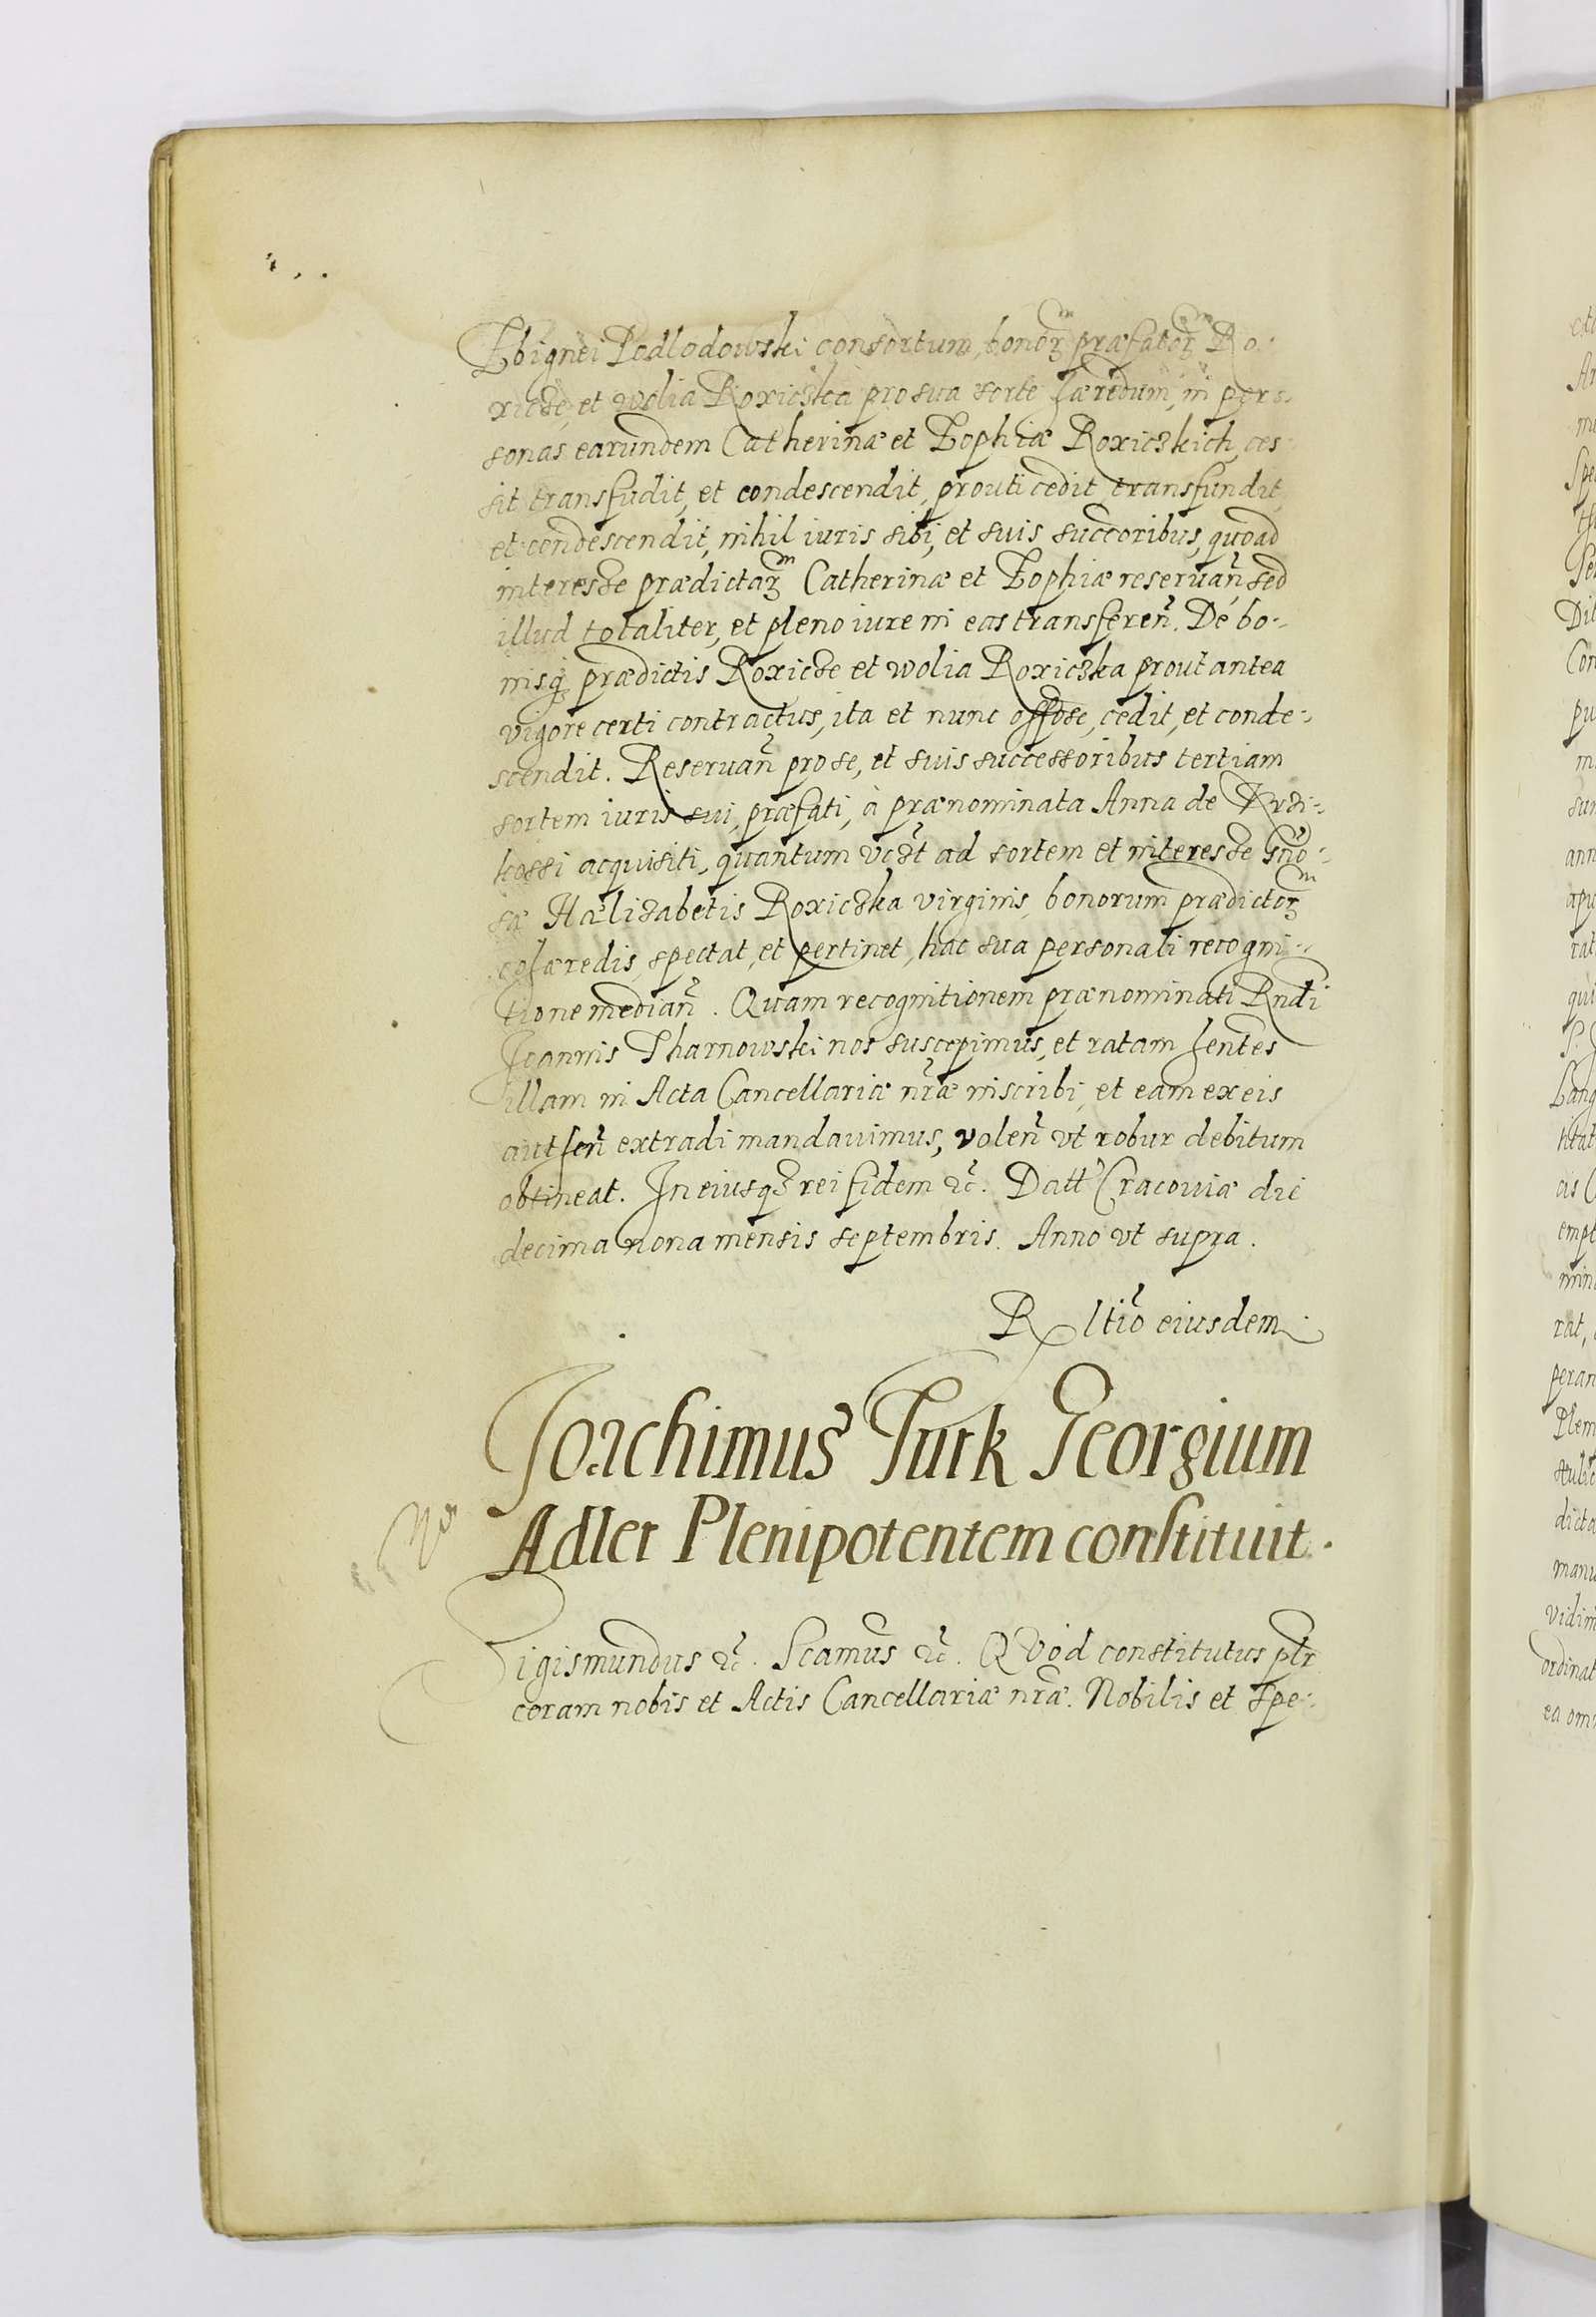 Zbignei Podlodowski consortum, bonorꝫ præfatorꝫ Ro-
xicze, et Wolia Roxiczka pro sua sorte hæredum, in per-
sonas earundem Catherinæ et Zophiæ Roxiczkich, ces-
sit transfudit, et condescendit, prouti cedit transfundit,
et condescendit, nihil iuris sibi, et suis succoribus, quoad
interesse prædictarꝫ Catherinæ et Zophiæ reseruañ, sed
illud totaliter, et pleno iure in eas transfereñ. De bo-
nisq prædictis Roxicze et Wolia Roxiczka prout antea
vigore certi contractus, ita et nunc cedit, et conde-
scendit. Reseruañ pro se, et suis successoribus tertiam
sortem iuris sui, præfati, à prænominata Anna de
acquisiti, quantum ad sortem et interesse Gño-
sæ Hælizabetis Roxiczka virginis, bonorum prædictorꝫ
cohæredis, spectat, et pertinet, hac sua personali recogni-
tione mediañ. Quam recognitionem prænominati Rndi
Joannis Tharnowski nos suscepimus, et ratam hentes
illam in Acta Cancellariæ nræ inscribi, et eam ex eis
aut heñ extradi mandauimus, voleñ vt robur debitum
obtineat. In eiusqꝫ rei fidem ꝛc. Datt Cracouiæ die
decima nona mensis septembris. Anno vt supra.
Rltio eiusdem
Joachimus Turk Georgium
Adler Plenipotentem constituit.
Sigismundus ꝛc. Scamus ꝛc. QVod constitutus pltr
coram nobis et Actis Cancellariæ nræ. Nobilis et Spe-